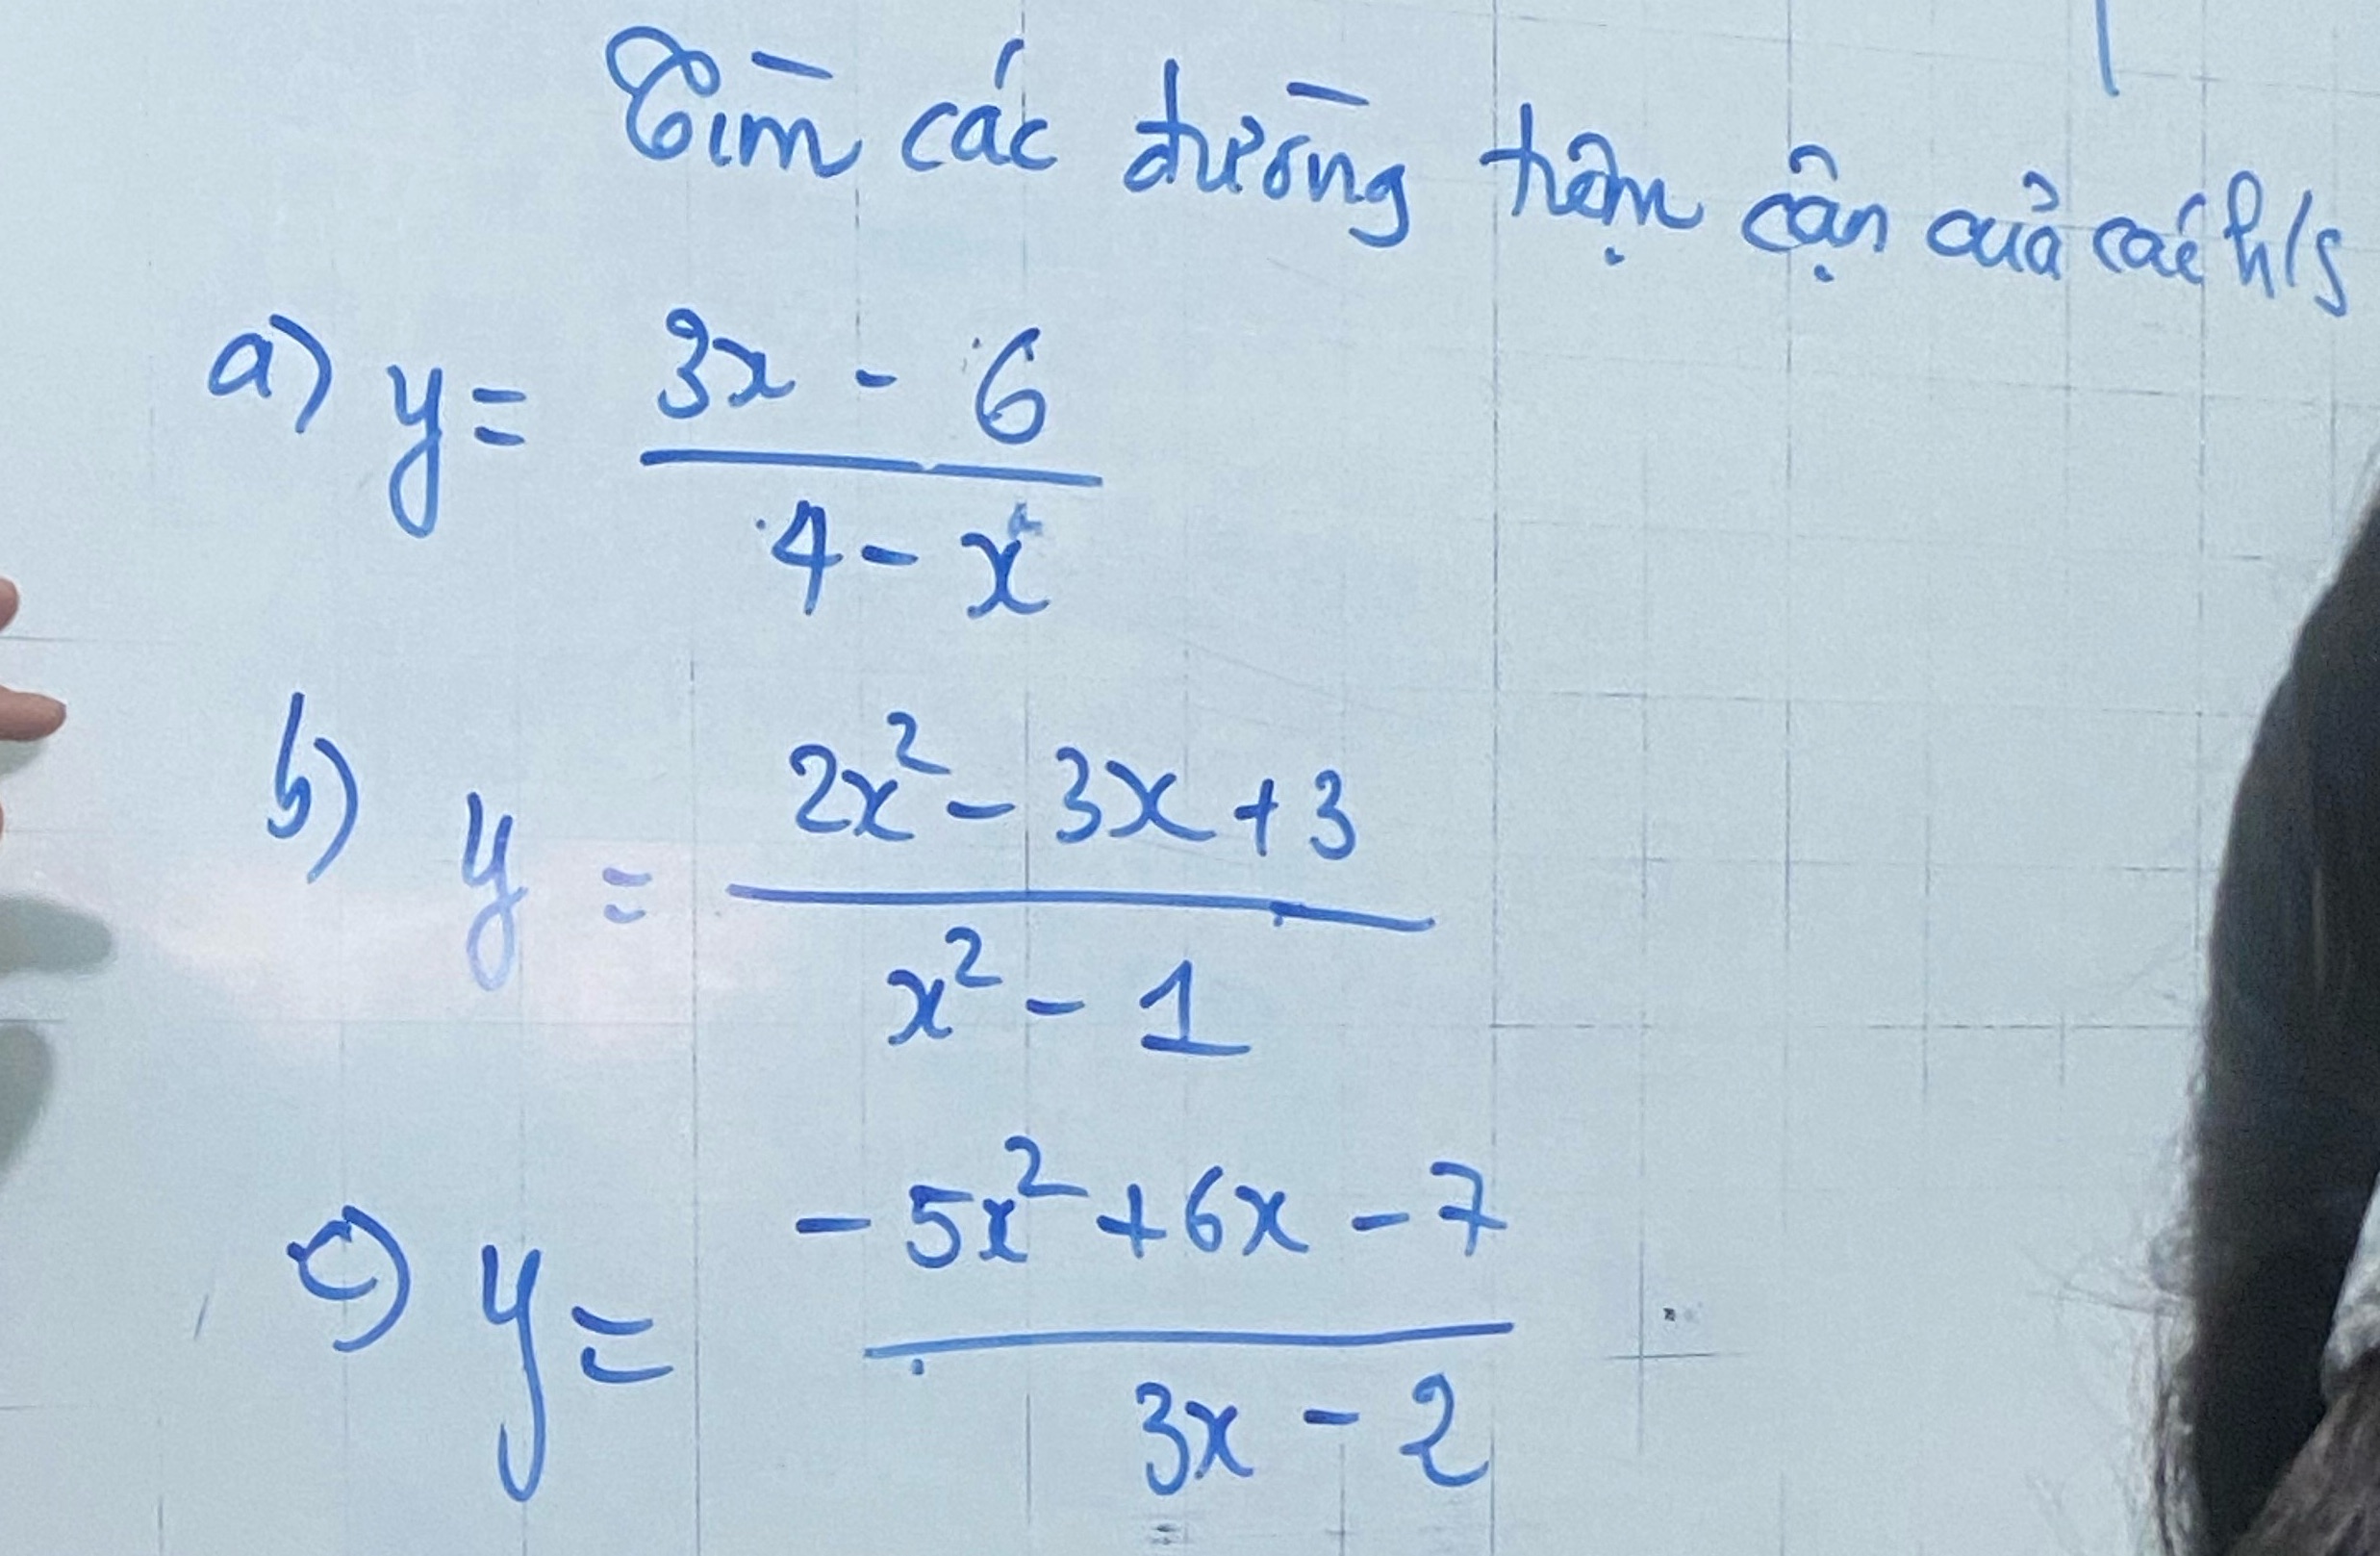 Tìm các đường tiệm cận của các h/s
a) y = \frac{3x - 6}{4 - x}
b) y = \frac{2x^2 - 3x + 3}{x^2 - 1}
c) y = \frac{-5x^2 + 6x - 7}{3x - 2}